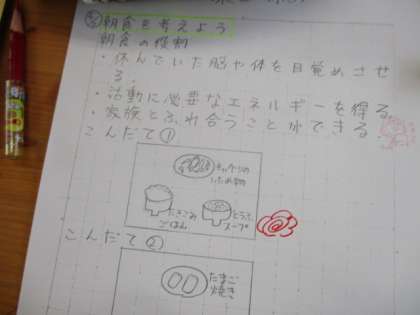 朝食を考えよう
朝食の役割
・休んでいた脳や体を目覚めさせ
る。
・活動に必要なエネルギーを得る。
・家族とふれ合うことができる。
こんだて①
いため物
たきこみ
ごはん
とうふ
スープ
こんだて②
たまご
焼き